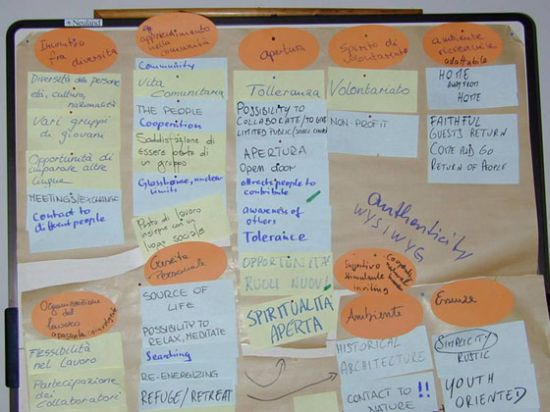 Neuland
Incontro
fra
diversità
Diversità del persone
età, cultura,
nazionalità
Vari gruppi
di giovani
Opportunità di
imparare altre
lingue
MEETINGS/EXCHANGE
Contact to
different people
Organizzazione
del
lavoro
Flessibilità
nel lavoro
Partecipazione
dei
collaboratori
apprendimento
nella
comunità
Community
Vita
Comunitaria
THE PEOPLE
Cooperation
Soddisfazione di
essere parte di
un gruppo
Glasshouse, unclear
limits
Posto di lavoro
insieme con un
luogo sociale
Crescita
Personale
SOURCE OF
LIFE
POSSIBILITY TO
RELAX, MEDITATE
Searching
RE-ENERGIZING
REFUGE/RETREAT
apertura
Tolleranza
POSSIBILITY TO
COLLABOLATE/TO GIVE
LIMITED PUBLIC/
APERTURA
OPEN DOOR
attracts people to
contribute
awareness of
others
Tolerance
OPPORTUNITA'
RUOLI NUOVI
SPIRITUALITÀ
APERTA
Spirito di
volontariato
Volontariato
NON-PROFIT
authenticity
WYSIWYG
Suggestivo
stimulante
inviting
Ambiente
HISTORICAL
ARCHITECTURE
CONTACT TO !!
NATURE
ambiente
adattabile
HOME
AWAY FROM
HOME
FAITHFUL
GUESTS RETURN
COME AND GO
RETURN OF PEOPLE
SIMPLICITY
RUSTIC
YOUTH
ORIENTED